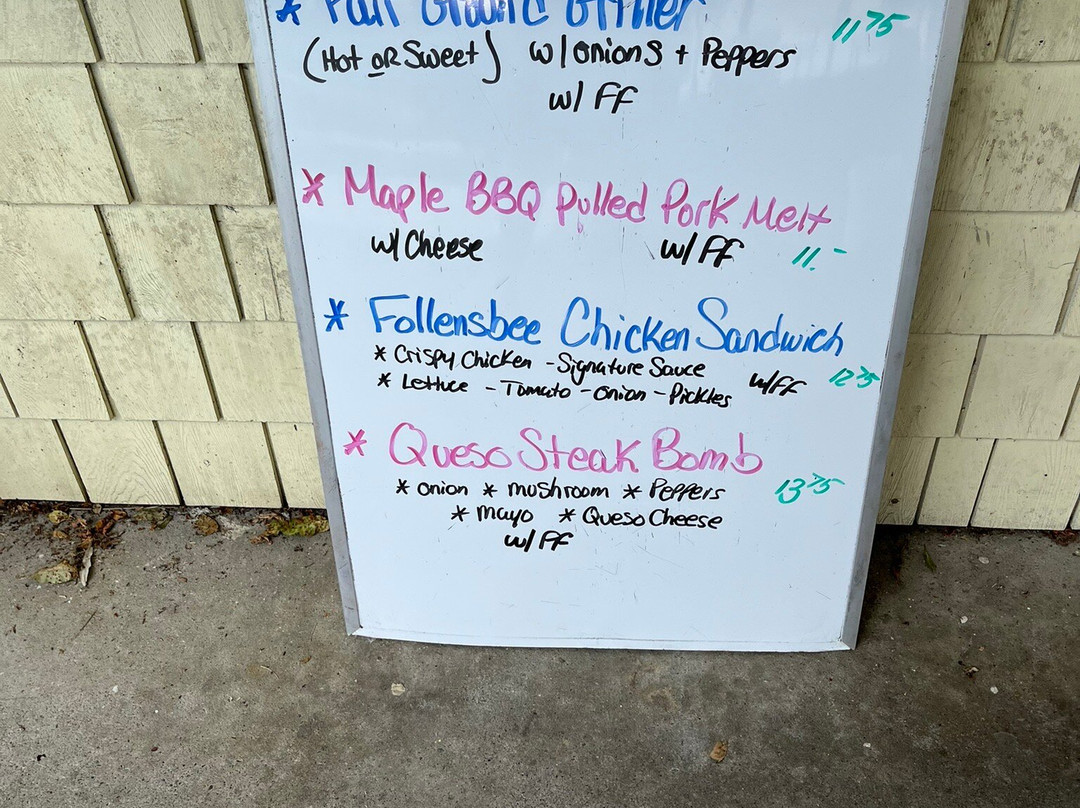 * 11 75
(Hot OR Sweet) w/ onions + Peppers
w/ FF
* Maple BBQ Pulled Pork Melt
w/ Cheese w/ FF 11.-
* Follensbee Chicken Sandwich
* Crispy Chicken - Signature Sauce
* Lettuce - Tomato - onion - Pickles w/ FF 12 75
* Queso Steak Bomb
* onion * mushroom * Peppers 13 75
* mayo * Queso Cheese
w/ FF